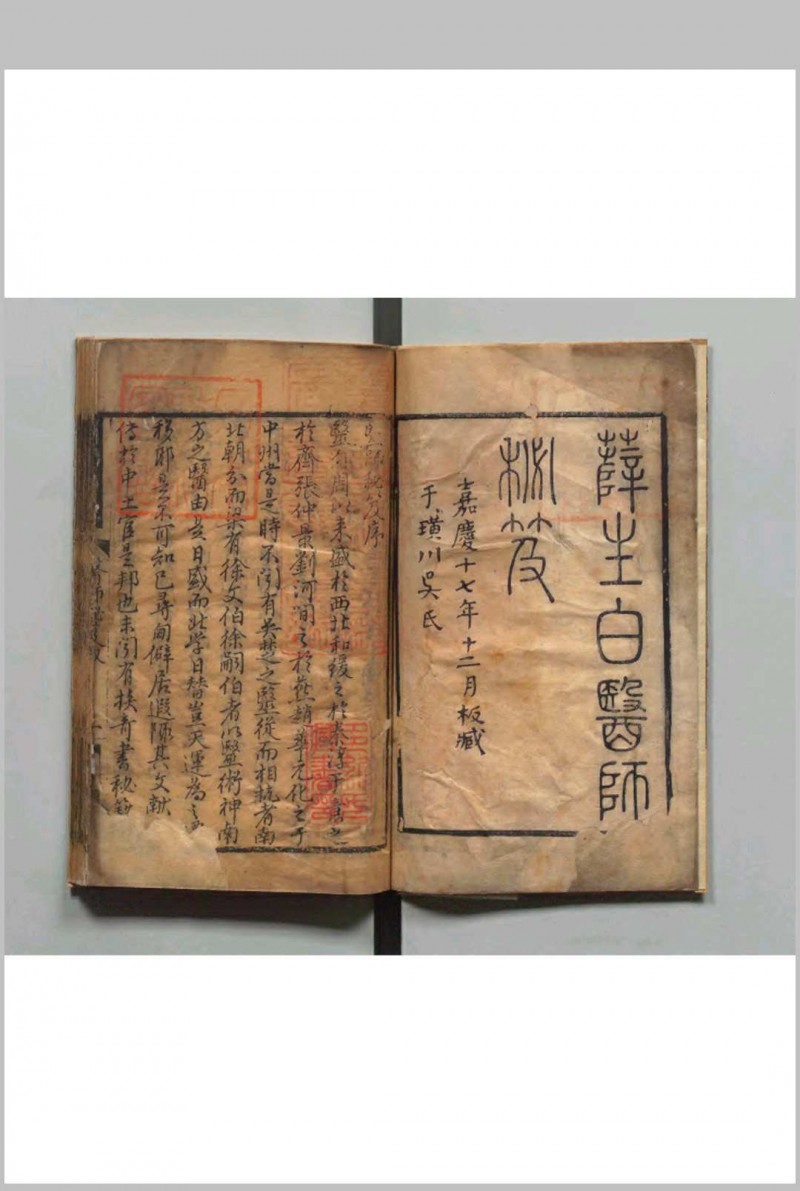 薛生白醫師
秘笈
嘉慶十七年十二月板藏
于璜川吳氏
醫師秘笈序
醫自周以來盛於西北和緩之於秦淳于意之
於齊張仲景劉河間之於燕趙華元化之于
中州當是時不聞有吳楚之醫從而相抗者南
北朝分而梁有徐文伯徐嗣伯者以醫術神南
方之醫由是日盛而北學日替豈天運為之
移耶是不可知已尋甸僻居遐陬其文獻
官是邦也未聞有挾奇書秘